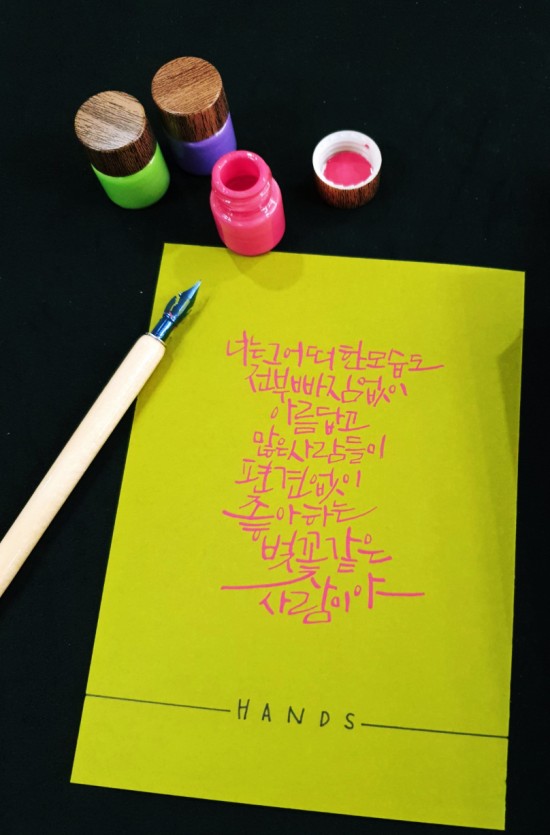 너는 그 어떠한 모습도
전부 빠짐없이
아름답고
많은 사람들이
편견없이
좋아하는
벚꽃같은
사람이야
HANDS